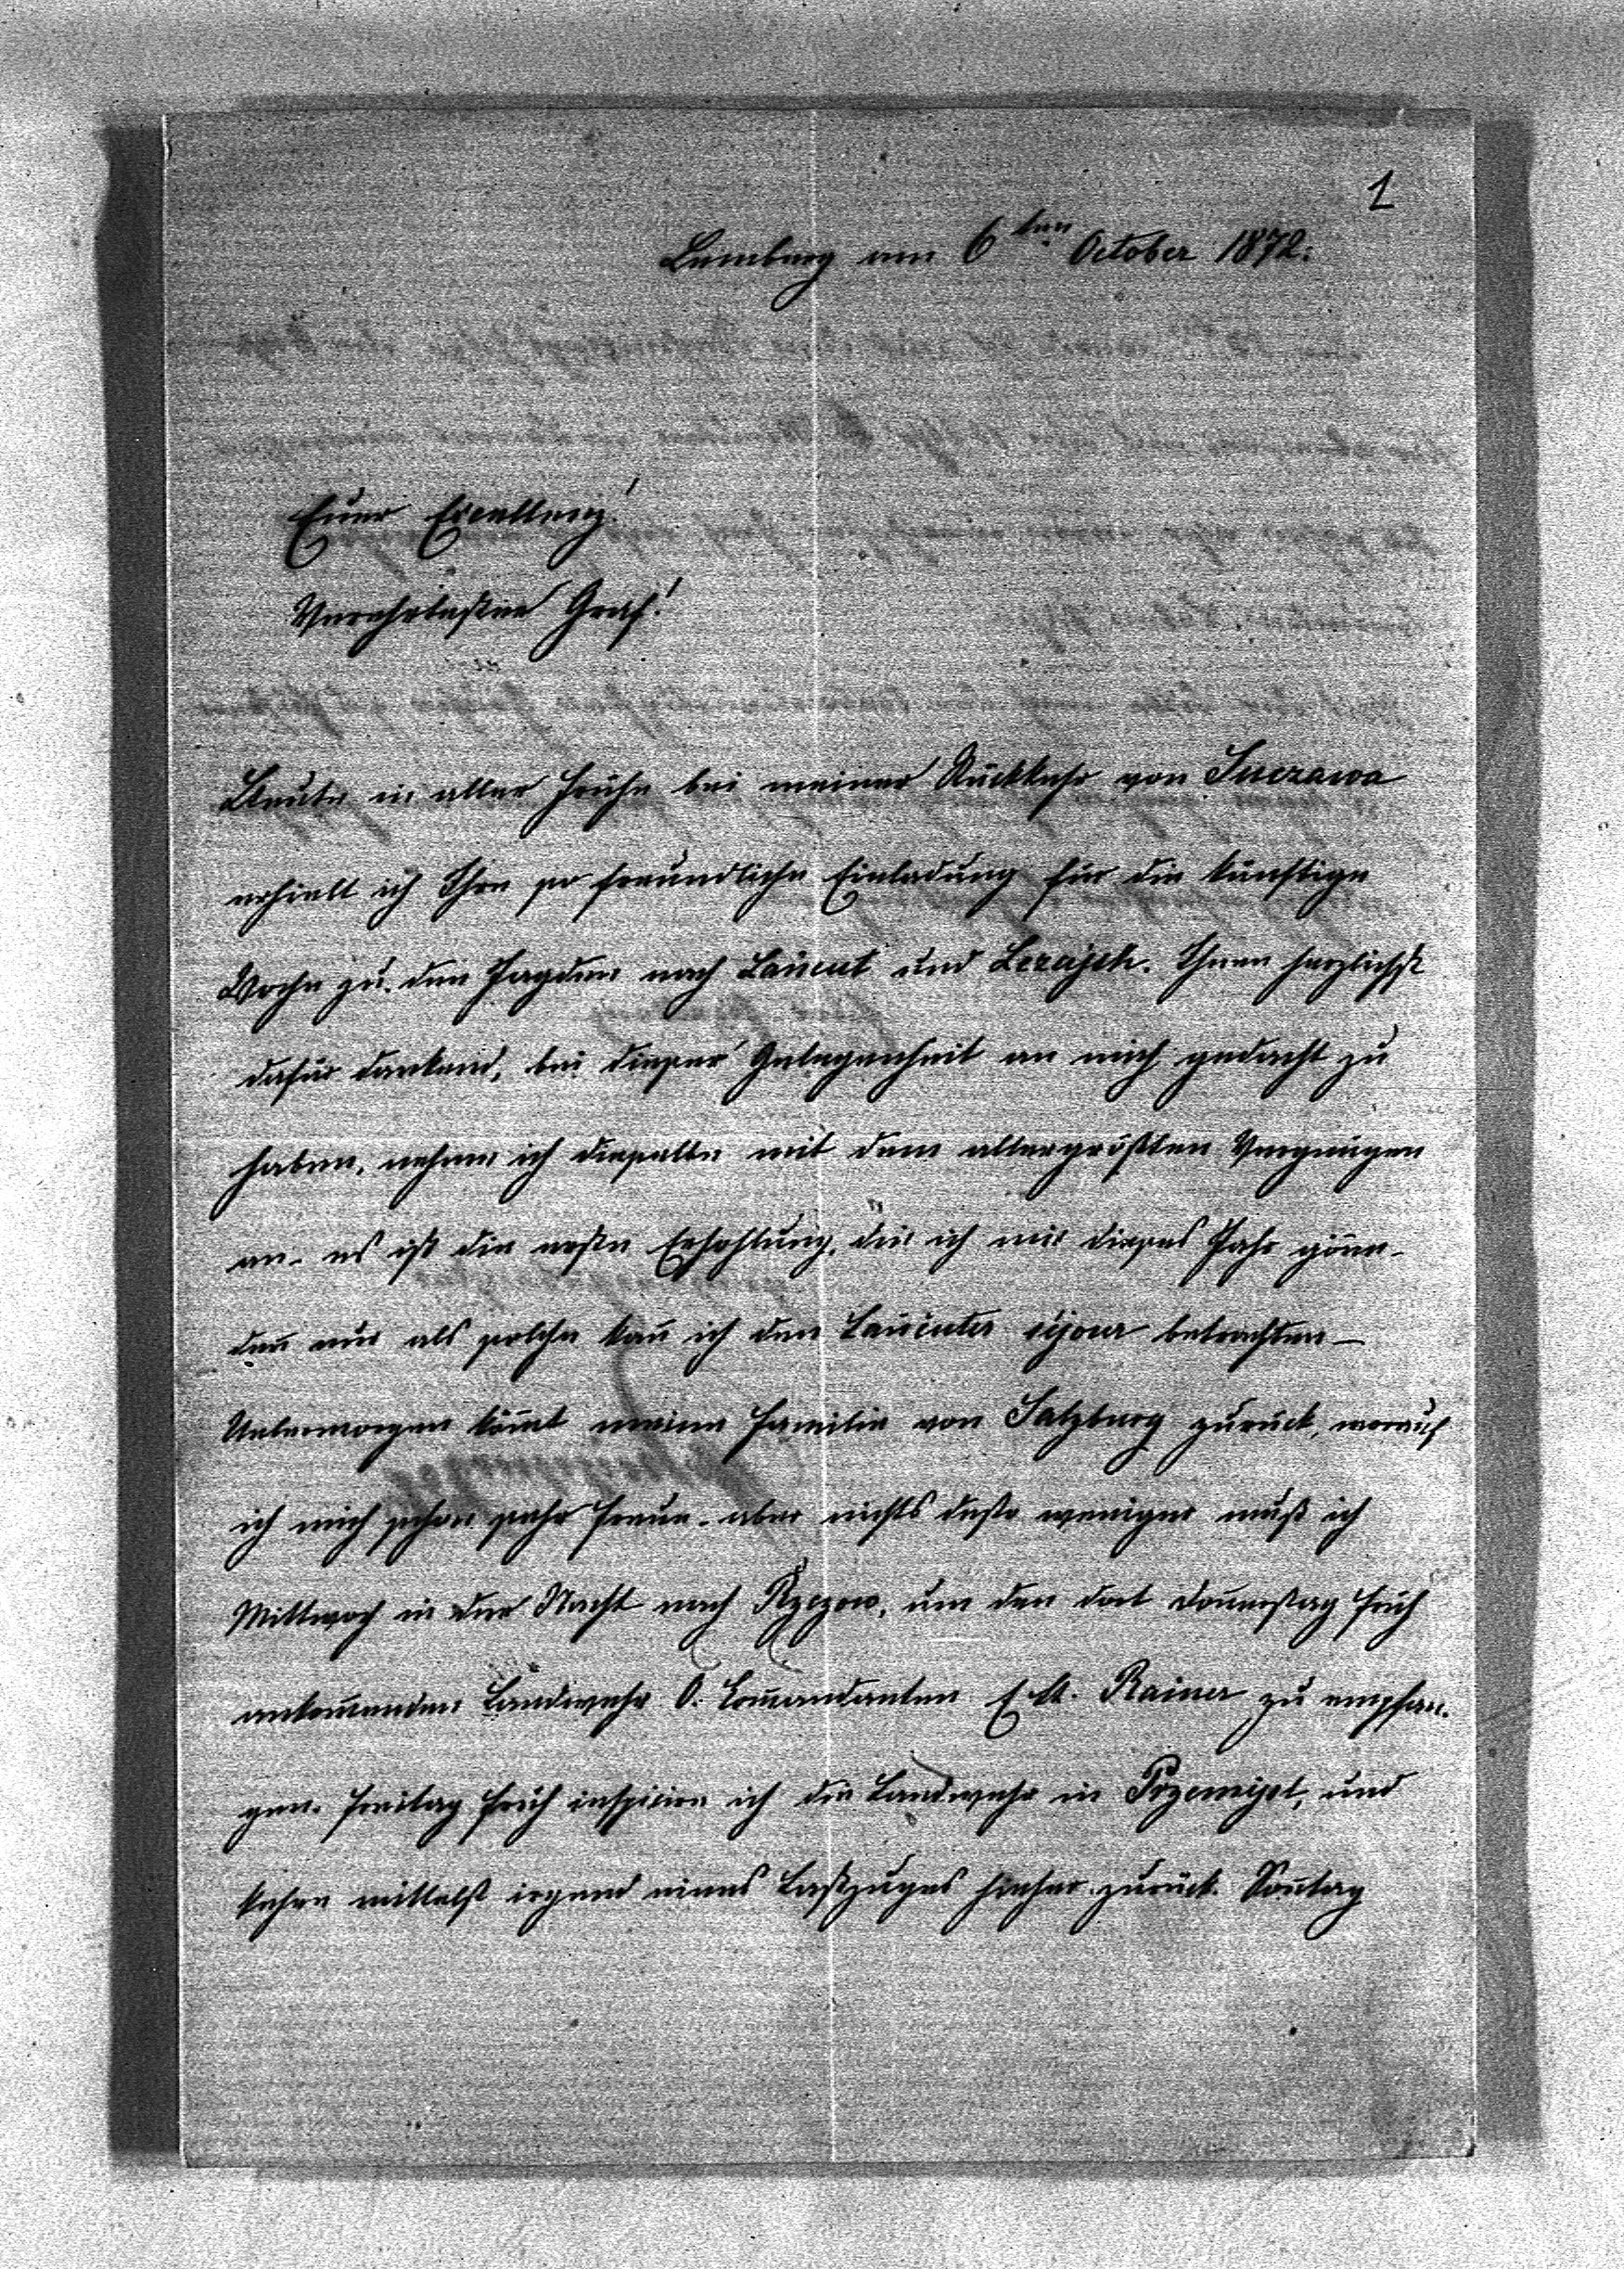 1
Lemberg am 6ten October 1872.
Euer Excellenz!
Verehrtester Graf!
Heute in aller Frühe bei meiner Rückkehr von Suczawa
erhielt ich Ihre so freundliche Einladung für die künftige
Woche zu den Jagden nach Lańcut und Lezajsk. Ihnen herzlichst
dafür dankend, bei dieser Gelegenheit an mich gedacht zu
haben, nehme ich dieselbe mit dem allergrößten Vergnügen
an - es ist die erste Erhohlung, die ich mir dieses Jahr gönne -
deñ nur als solche kañ ich den Lańcuter séjour betrachten -
Uebermorgen köm̄t meine Familie von Salzburg zurück, worauf
ich mich schon sehr freue - aber nichts desto weniger muß ich
Mittwoch in der Nacht nach Rzezow, um den dort Doñerstag früh
ankom̄enden Landwehr O. Com̄andanten E. H. Rainer zu empfan-
gen. Freitag früh inspicire ich die Landwehr in Przemysl, und
kehre mittelst irgend eines Lastzuges hieher zurück. Soñtag